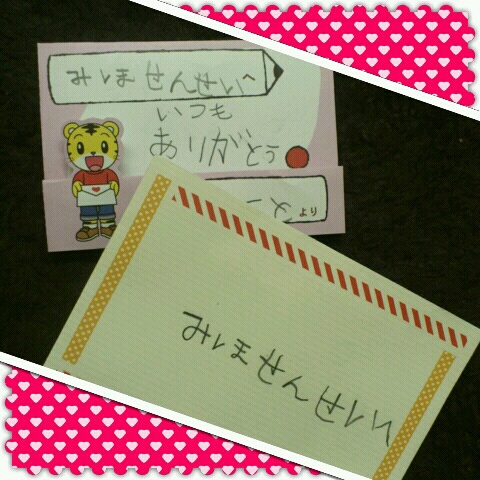 みしませんせいへ
いつも
ありがとう
より
みしませんせい